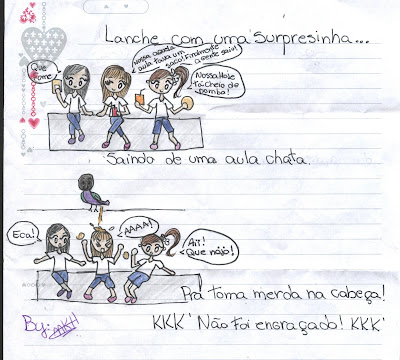 Lanche com uma surpresinha...
Que fome
Nossa aquela
aula tava um
saco! Finalmente
a gente saiu!
Nossa! Hoje
Tá cheio de
pombo!
Saindo de uma aula chata.
Eca!
AAAA!
Aii!
Que nojo!
Pra toma merda na cabeça!
By:
KKK 'Não foi engraçado! KKK'